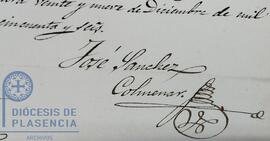 veinte y nueve de Diciembre de mil
cincuenta y seis.
José Sanchez
Colmenar
DIÓCESIS DE
PLASENCIA
ARCHIVOS